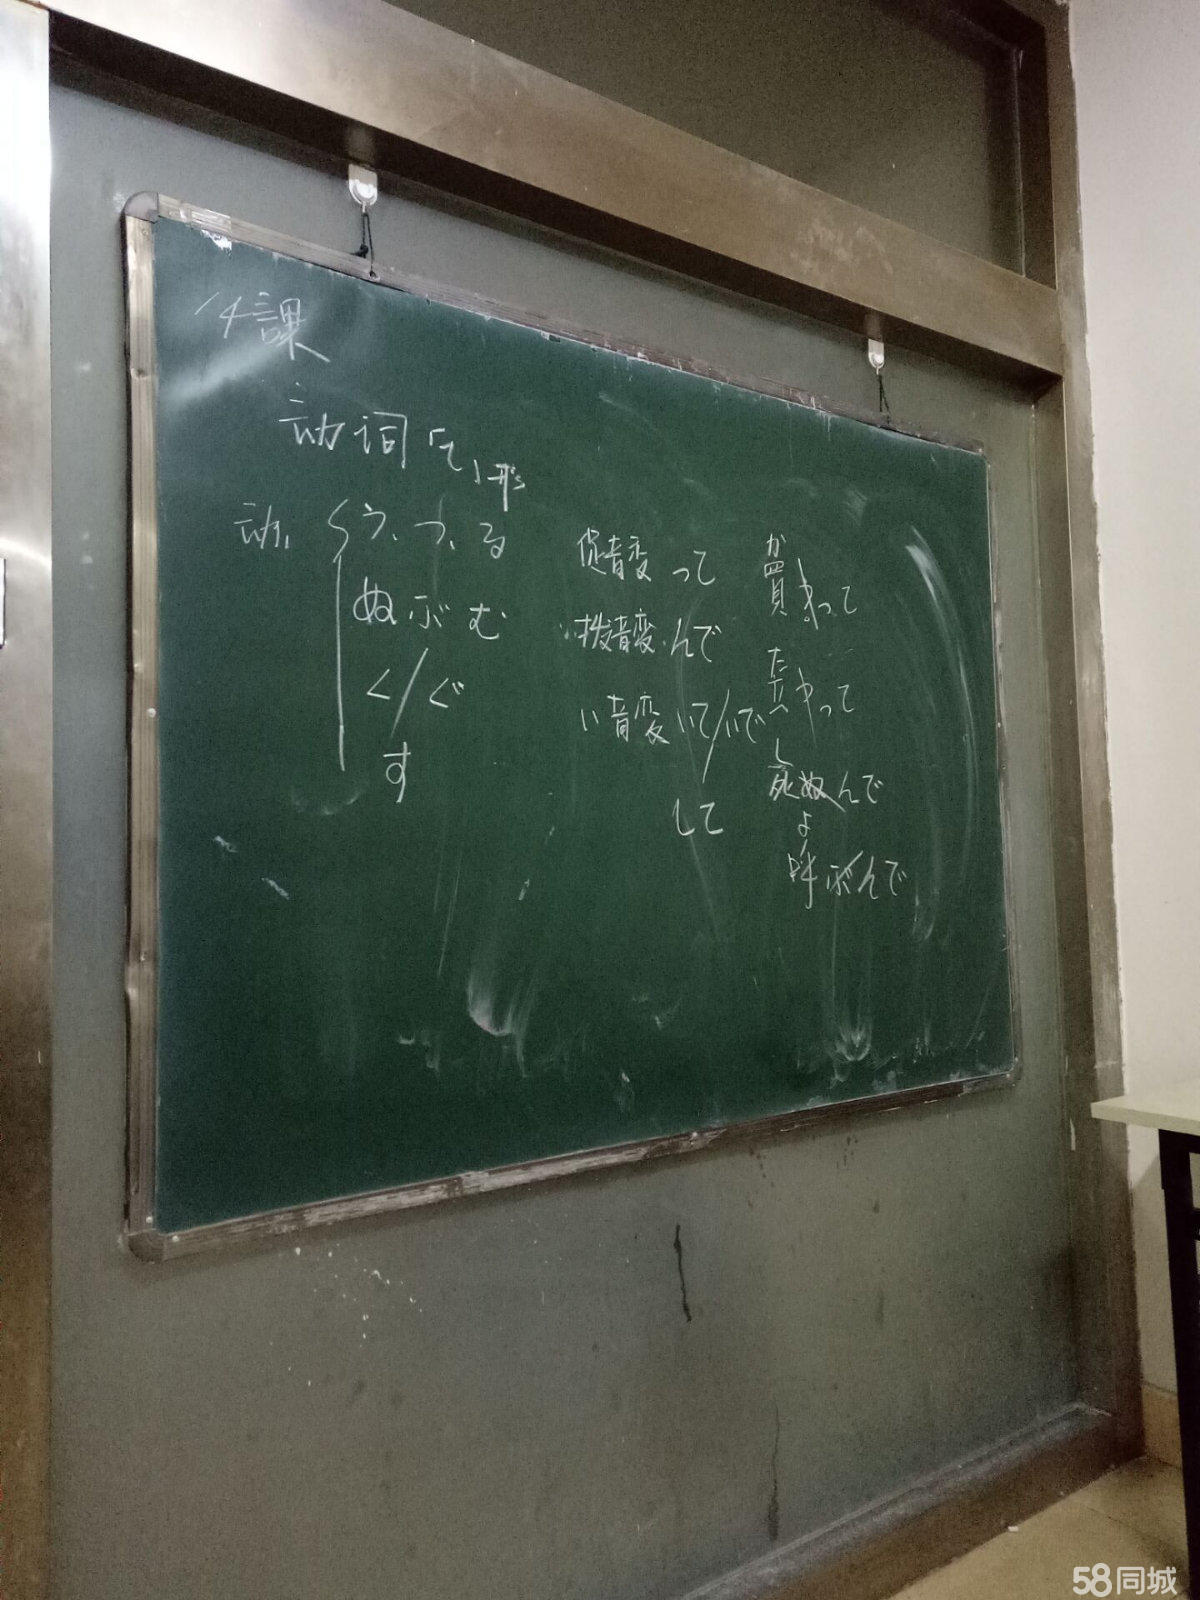 14課
动词「て」形
动₁ う、つ、る 促音変 って
ぬ ぶ む 拨音変 んで
く/ぐ い音変 いて/いで
す して
か
買 って
た
食 って
し
死ぬんで
よ
呼ぶんで
58同城